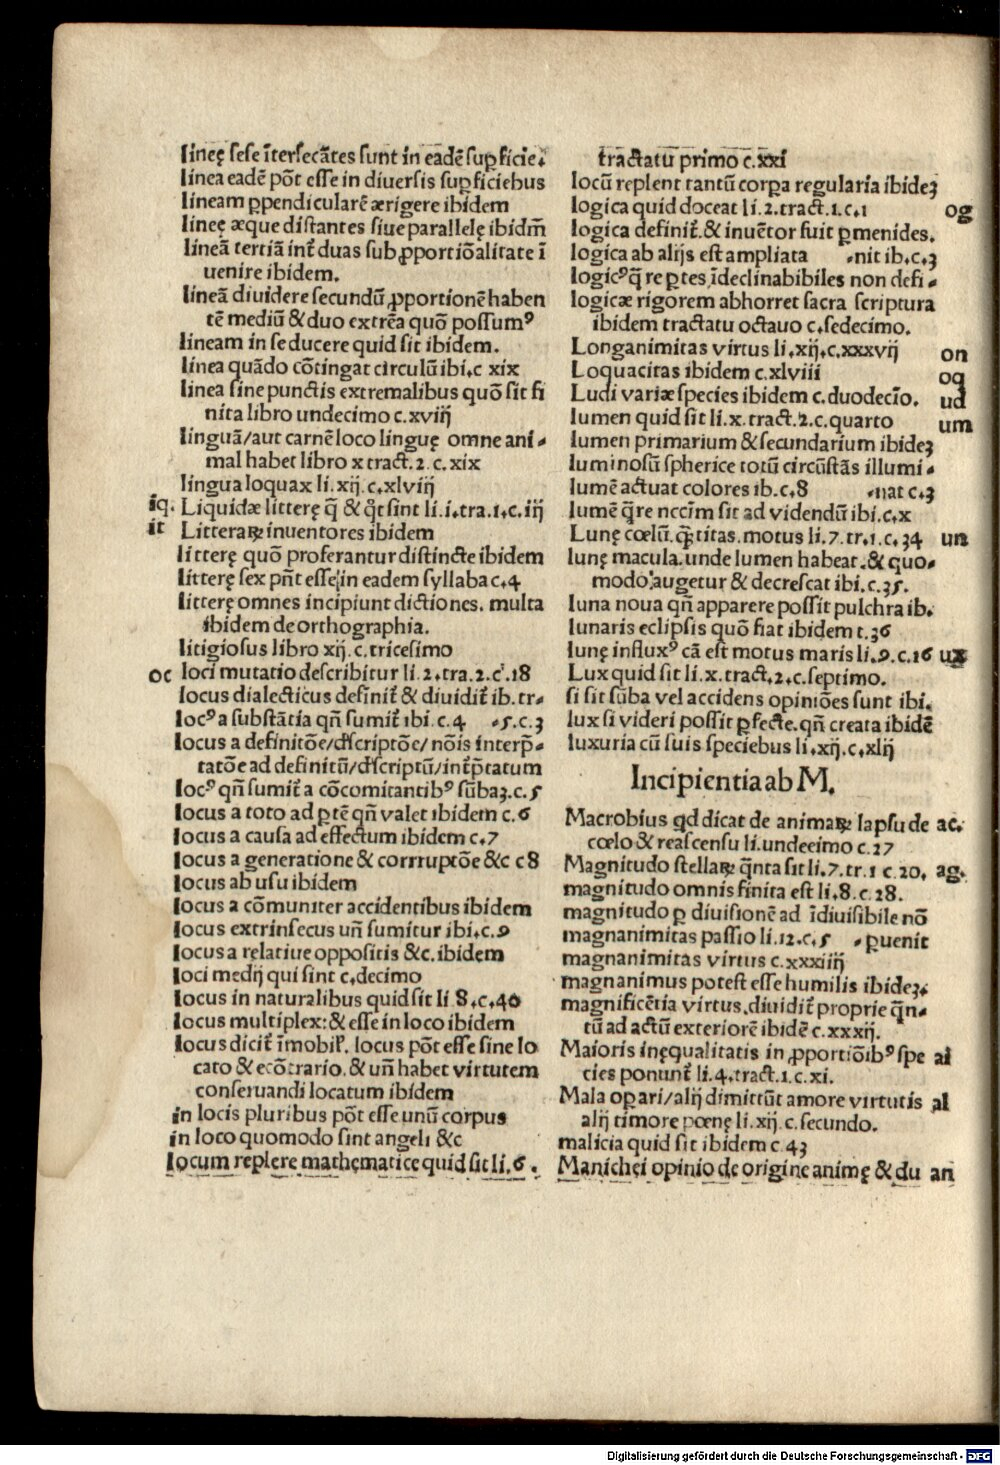 lineę sese ītersecātes sunt in eadē suꝑficie.
linea eadē pōt esse in diuersis suꝑficiebus
lineam ꝑpendicularē ærigere ibidem
lineę æque distantes siue parallelę ibidm̄
lineā tertiā int̄ duas sub ꝓportiōalitate ī
uenire ibidem.
lineā diuidere secundū ꝓportionē haben
tē mediū & duo extrēa quō possumꝰ
lineam in se ducere quid sit ibidem.
linea quādo cōtingat circulū ibi.c xix
linea sine punctis extremalibus quō sit fi
nita libro undecimo c.xviij
linguā/aut carnē loco linguę omne ani-
mal habet libro x tract.2.c.xix
lingua loquax li.xij.c.xlviij
iq. Liquidæ litterę q̄ & q̄t sint li.i.tra.1.c.iij
it Litteraꝝ inuentores ibidem
litterę quō proferantur distincte ibidem
litterę sex pn̄t esse in eadem syllaba c.4
litterę omnes incipiunt dictiones. multa
ibidem de orthographia.
litigiosus libro xij.c.tricesimo
oc loci mutatio describitur li.2.tra.2.c.18
locus dialecticus definit̄ & diuidit̄ ib.tr.
locꝰ a substātia qn̄ sumit̄ ibi.c.4 .5.c.3
locus a definitōe/descriptōe/nōis interp̄-
tatōe ad definitū/descriptū/int̄p̄tatum
locꝰ qn̄ sumit̄ a cōcomitantibꝰ sūbaꝫ.c.5
locus a toto ad ꝑtē qn̄ valet ibidem c.6
locus a causa ad effectum ibidem c.7
locus a generatione & corrruptōe &c c8
locus ab usu ibidem
locus a cōmuniter accidentibus ibidem
locus extrinsecus un̄ sumitur ibi.c.9
locus a relatiue oppositis &c.ibidem
loci medij qui sint c.decimo
locus in naturalibus quid sit li.8.c.40
locus multiplex:& esse in loco ibidem
locus dicit̄ īmobil'. locus pōt esse sine lo
cato & ecōtrario.& un̄ habet virtutem
conseruandi locatum ibidem
in locis pluribus pōt esse unū corpus
in loco quomodo sint angeli &c
locum replere mathematice quid sit li.6.
tractatu primo c.xxi
locū replent tantū corꝑa regularia ibideꝫ
logica quid doceat li.2.tract.1.c.1 og
logica definit̄.& inuētor fuit ꝑmenides.
logica ab alijs est ampliata .nit ib.c.3
logicꝰ q̄re ꝑtes īdeclinabibiles non defi-
logicæ rigorem abhorret sacra scriptura
ibidem tractatu octauo c.sedecimo.
Longanimitas virtus li.xij.c.xxxvij on
Loquacitas ibidem c.xlviii oq
Ludi variæ species ibidem c.duodecīo. ud
lumen quid sit li.x.tract.2.c.quarto um
lumen primarium & secundarium ibideꝫ
luminosū spherice totū circūstās illumi-
lumē actuat colores ib.c.8 .nat c.3
lumē q̄re nccīm sit ad videndū ibi.c.x
Lunę cœlū.q̄ntitas.motus li.7.tr.1.c.34 un
lunę macula.unde lumen habeat.& quo-
modo augetur & decrescat ibi.c.35.
luna noua qn̄ apparere possit pulchra ib.
lunaris eclipsis quō fiat ibidem c.36
lunę influxꝰ cā est motus maris li.9.c.16 ux
Lux quid sit li.x.tract.2.c.septimo.
si sit sūba vel accidens opiniōes sunt ibi.
lux si videri possit ꝑfecte.qn̄ creata ibidē
luxuria cū suis speciebus li.xij.c.xlij
Incipientia ab M.
Macrobius qd dicat de animaꝝ lapsu de ac.
cœlo & reascensu li.undecimo c.27
Magnitudo stellaꝝ q̄nta sit li.7.tr.1 c.20. ag.
magnitudo omnis finita est li.8.c.28.
magnitudo ꝑ diuisionē ad īdiuisibile nō
magnanimitas passio li.12.c.5 .ꝑuenit
magnanimitas virtus c.xxxiiij
magnanimus potest esse humilis ibideꝫ.
magnificētia virtus.diuidit̄ proprie q̄n-
tū ad actū exteriorē ibidē c.xxxij.
Maioris inęqualitatis in ꝓportiōibꝰ spe ai
cies ponunt̄ li.4.tract.1.c.xi.
Mala oꝑari/alij dimittūt amore virtutis al
alij timore pœnę li.xij.c.secundo.
malicia quid sit ibidem c.43
Manichei opinio de origine animę & du an
Digitalisierung gefördert durch die Deutsche Forschungsgemeinschaft - DFG